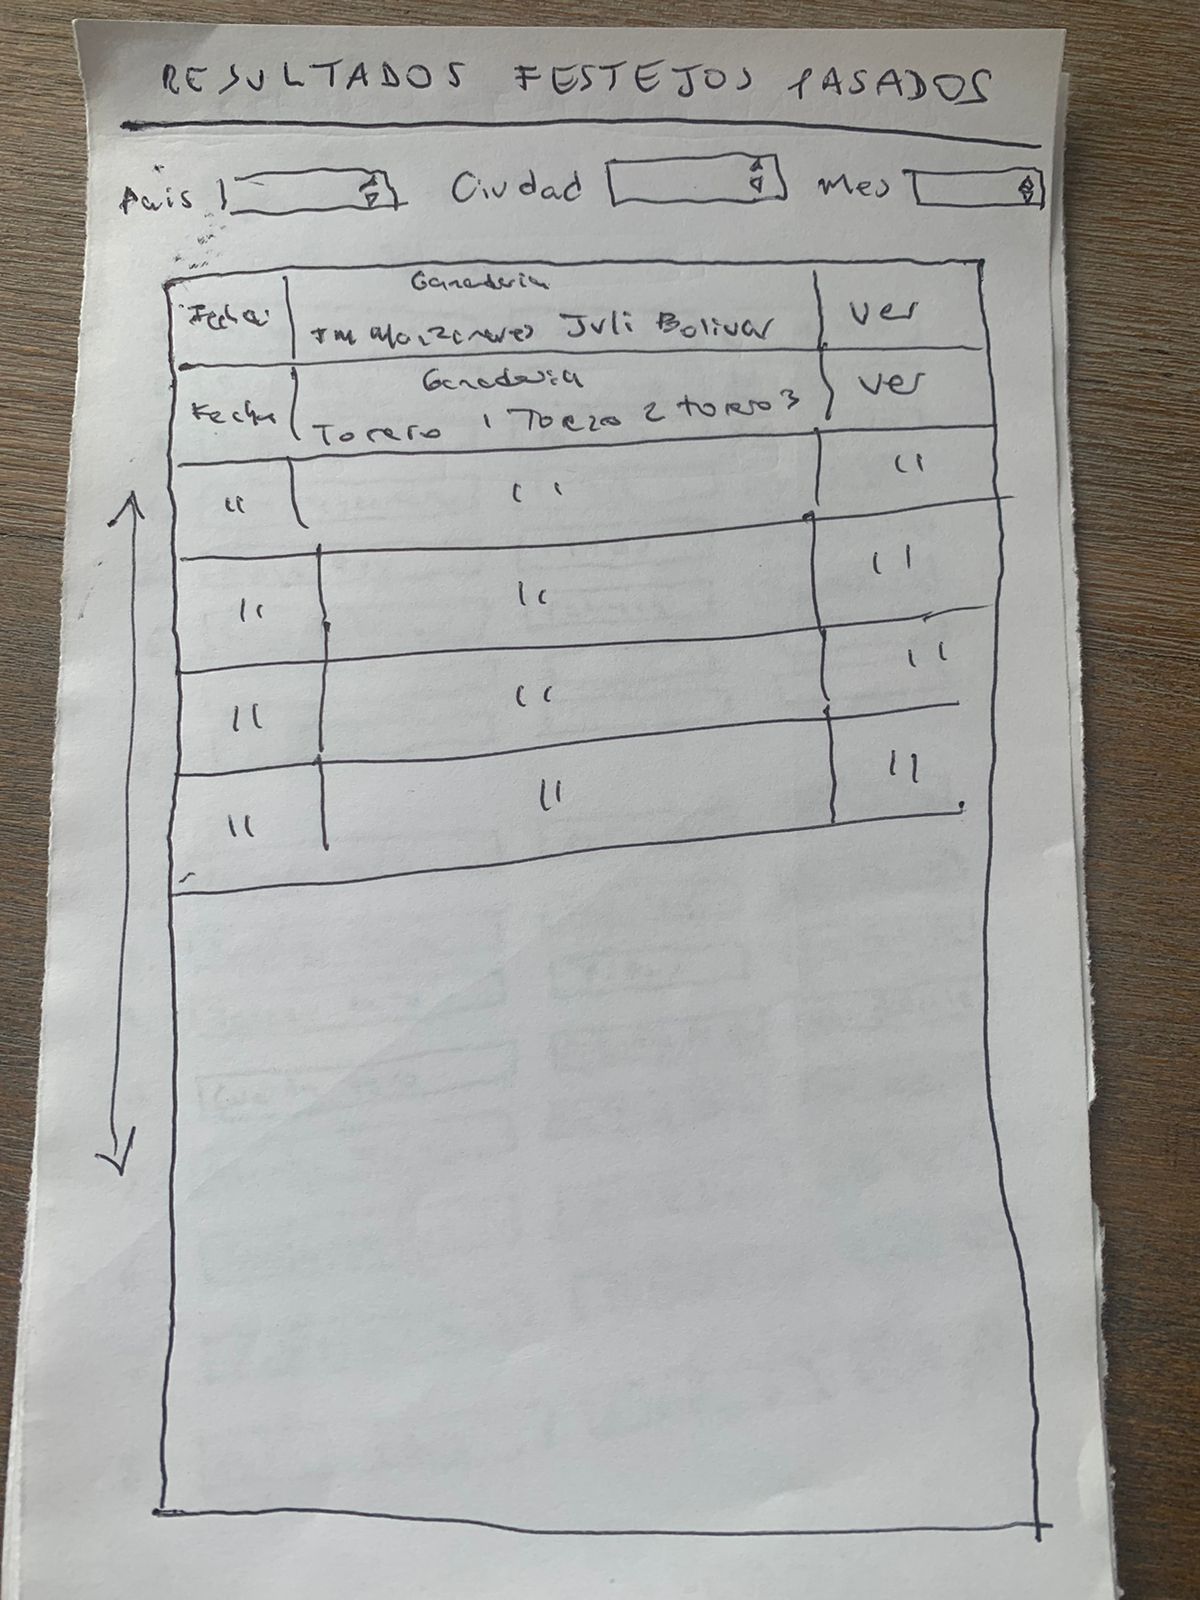 RESULTADOS FESTEJOS PASADOS
Pais Ciudad Mes
Fecha Ganaderia Ver
JM Manzanares Juli Bolivar
Fecha Ganaderia Ver
Torero 1 Torero 2 torero 3
" " "
" " "
" " "
" " "